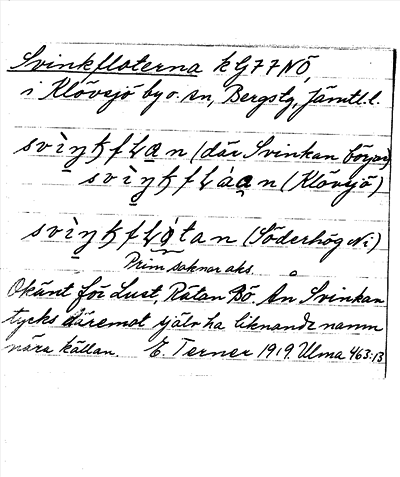 Svinkfloterna k G77NÖ,
i Klövsjö by o. sn, Bergs tg, Jämtl. l.
svìŋkfLan (där Svinkan börjar)
svìŋkfLáan (Klövsjö)
svìŋkfLótan (Söderhög Ni)
Prim saknar aks.
Okänt för Lust, Rätan Bö. Ån Svinkan
tycks däremot själv ha liknande namn
nära källan. E. Terner 1919. Ulma 463:13